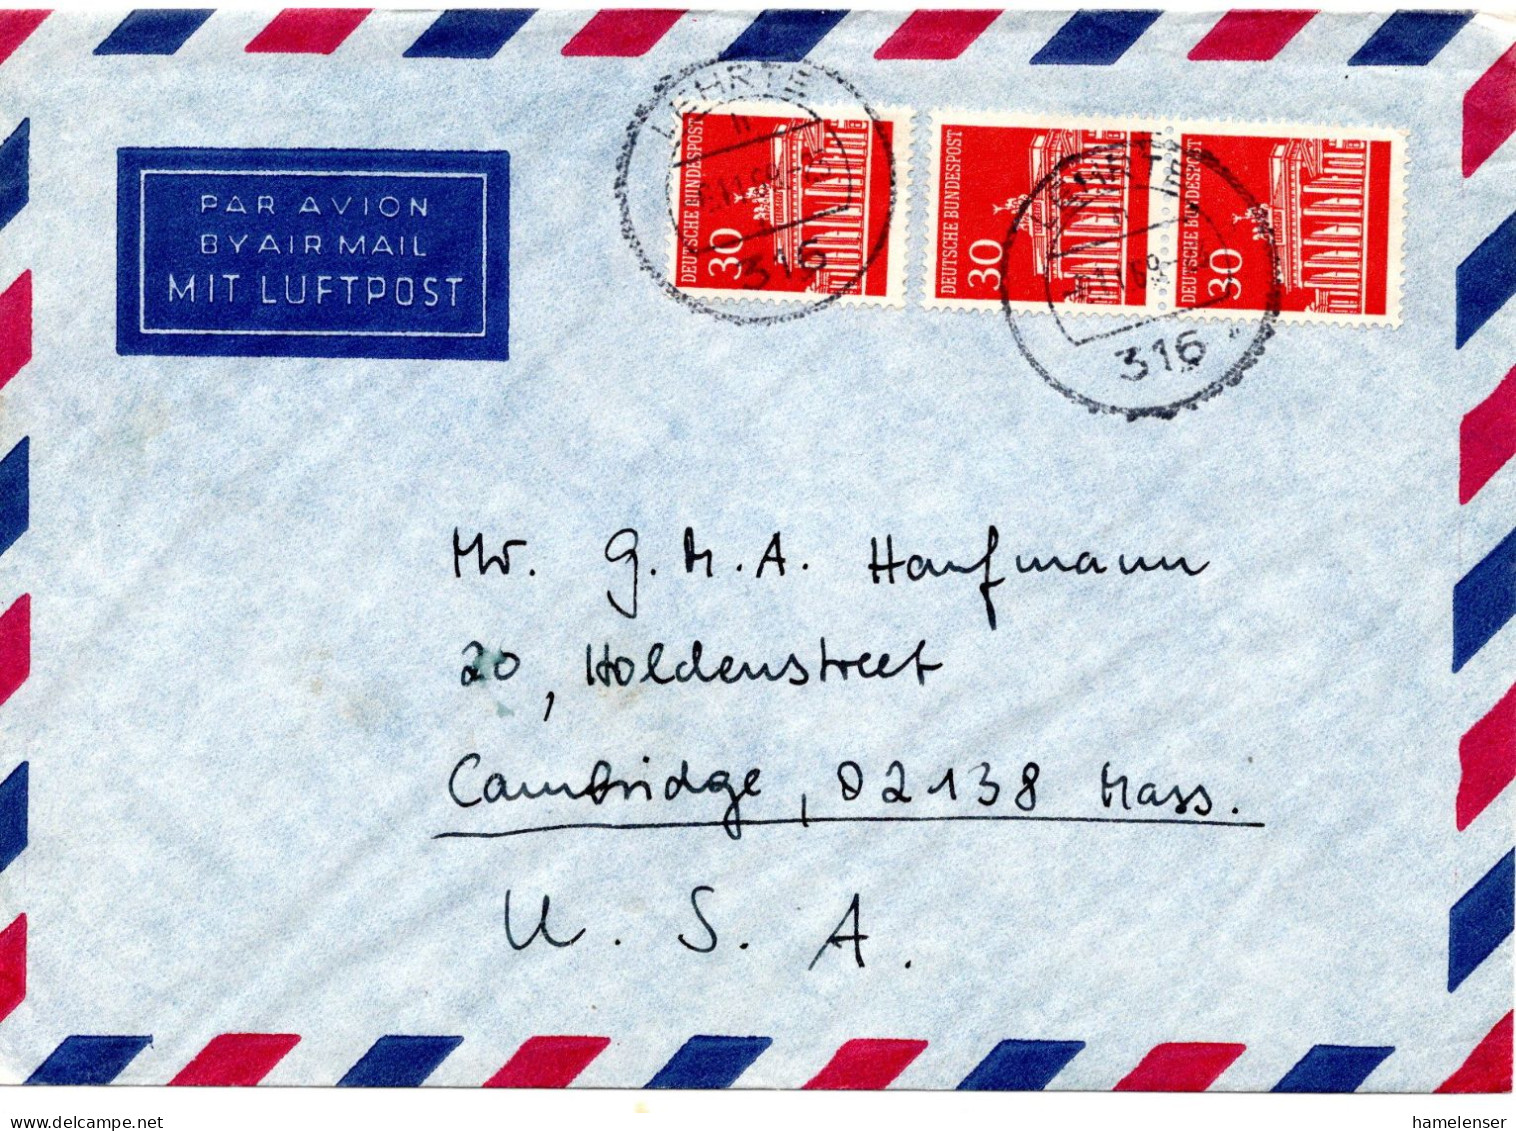 PAR AVION
BY AIR MAIL
MIT LUFTPOST
LEHRTE
316
DEUTSCHE BUNDESPOST
30
DEUTSCHE BUNDESPOST
30
DEUTSCHE BUNDESPOST
30
LEHRTE
316
Mr. G. M. A. Haufmann
20, Holdenstreet
Cambridge, 02138 Mass.
U. S. A.
hamelenser